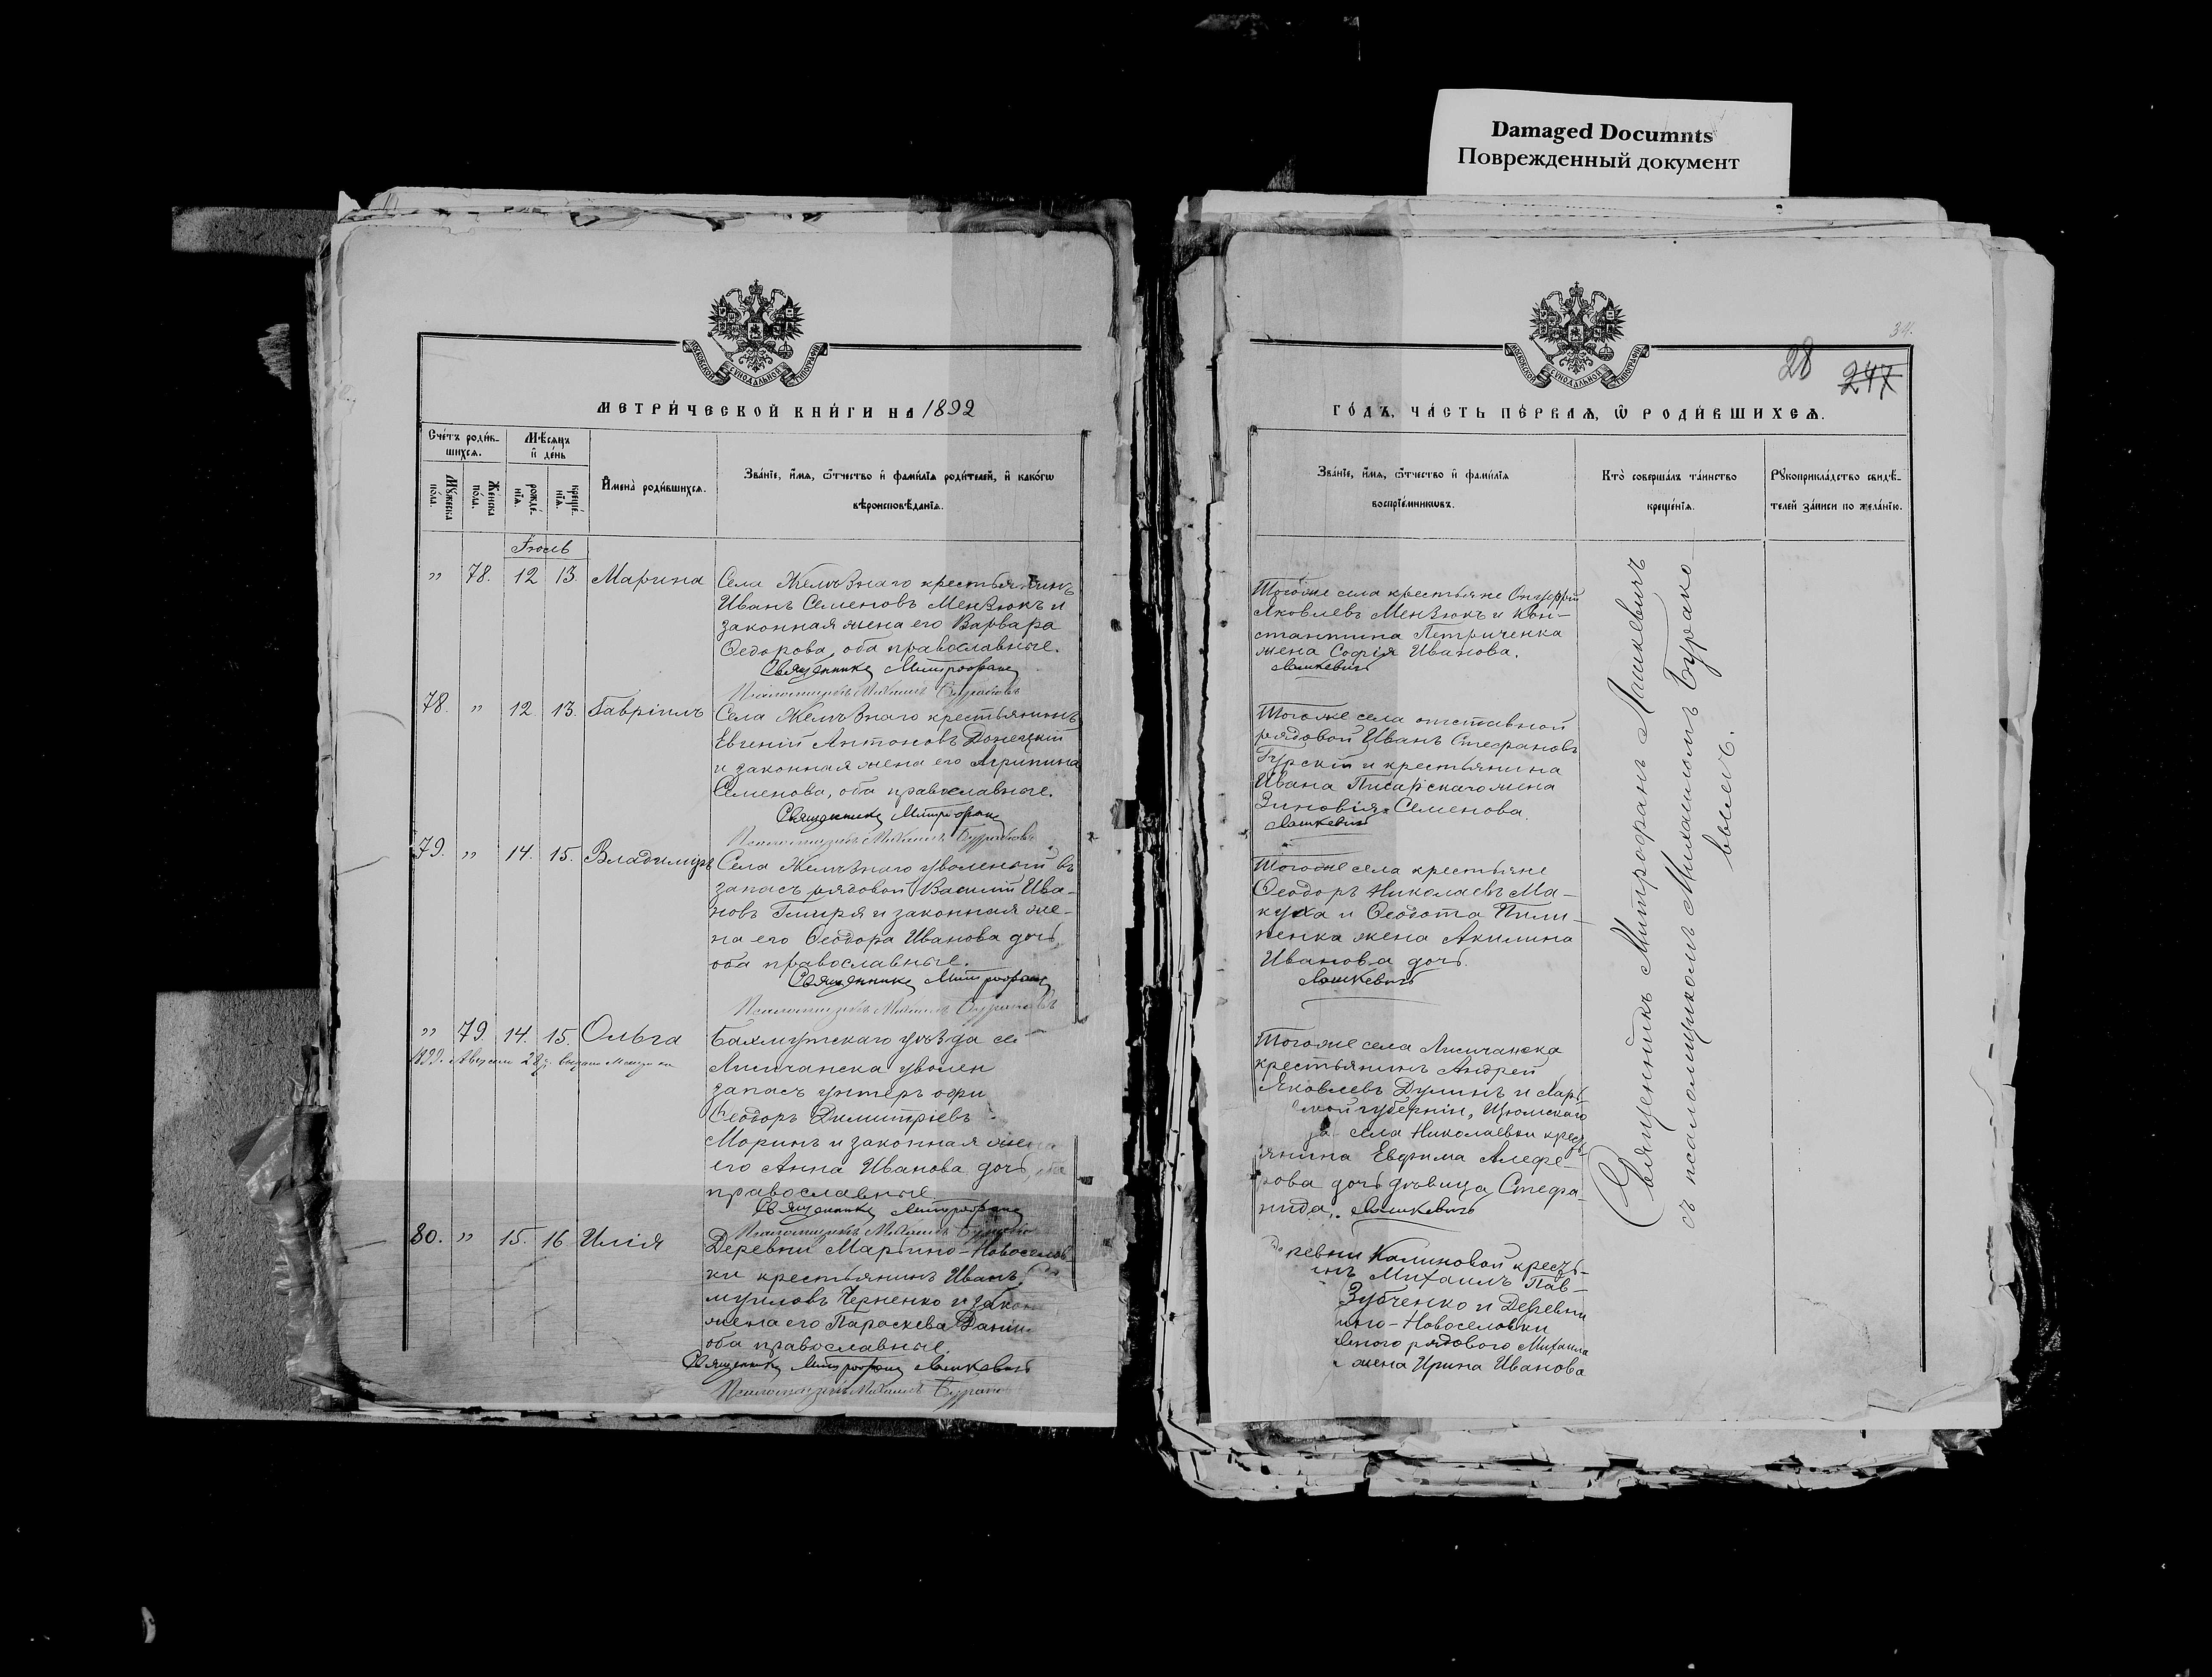 Damaged Documnts
Поврежденный документ
34.
28 247
МОСКОВСКОЙ СѴНОДАЛЬНОЙ ТИПОГРАФІИ
МЕТРИ́ЧЕСКОЙ КНИ́ГИ НА 1892
Сче́тъ роди́в-
шихсѧ.
Мѣ́сѧцъ
и҆ де́нь
Мꙋ́жеска
по́ла.
Же́нска
по́ла.
рожде́-
нїѧ.
креще́-
нїѧ.
И҆мена̀ роди́вшихсѧ.
Зва́нїе, и҆́мѧ, ѻ҆́тчество и҆ фами́лїѧ роди́телей, и҆ како́гѡ
вѣроисповѣ́данїѧ.
Іюль
„ 78. 12 13. Марина
Села Желѣзнаго крестьянинъ
Иванъ Семеновъ Мензюкъ и
законная жена его Варвара
Ѳедорова, оба православные.
Священникъ Митрофанъ
Псаломщикъ Михаилъ Бураковъ
78. „ 12 13. Гавріилъ
Села Желѣзнаго крестьянинъ
Евгеній Антоновъ Донецкій
и законная жена его Агрипина
Семенова, оба православные.
Священникъ Митрофанъ
Псаломщикъ Михаилъ Бураковъ
79. „ 14. 15. Владиміръ
Села Желѣзнаго уволеный въ
запасъ рядовой Василій Ива-
новъ Гмиря и законная же-
на его Ѳеодора Иванова дочь,
оба православные.
Священникъ Митрофанъ
Псаломщикъ Михаилъ Бураковъ
„ 79. 14. 15. Ольга
28
Бахмутскаго уѣзда се
Лисичанска уволен
запасъ унтеръ офи
Ѳеодоръ Димитріевъ
Моринъ и законная жена
его Анна Иванова дочь, оба
православные.
Священникъ Митрофанъ
Псаломщикъ Михаилъ Бураковъ
80. „ 15. 16 Илія
Деревни Марьино-Новоселов
ки крестьянинъ Иванъ Са
муиловъ Черненко и закон
жена его Параскева Данил
оба православные.
Священникъ Митрофанъ Лашкевичъ
Псаломщикъ Михаилъ Бураков
МОСКОВСКОЙ СѴНОДАЛЬНОЙ ТИПОГРАФІИ
ГО́ДЪ, ЧА́СТЬ ПЕ́РВАѦ, Ѡ҆ РОДИ́ВШИХСѦ.
Зва́нїе, и҆́мѧ, ѻ҆́тчество и҆ фами́лїѧ
воспрїе́мникѡвъ.
Кто̀ соверша́лъ та́инство
креще́нїѧ.
Рꙋкоприкла́дство свидѣ́-
телей за́писи по жела́нїю.
Тогоже села крестьяне Онуфрій
Яковлевъ Мензюкъ и Кон-
стантина Петриченка
жена Софія Иванова.
Лашкевичъ
Тогоже села отставной
рядовой Иванъ Стефановъ
Гурскій и крестьянина
Ивана Писарскаго жена
Зиновія Семенова.
Лашкевичъ
Тогоже села крестьяне
Ѳеодоръ Николаевъ Ма-
куха и Ѳеодота Пили-
пенка жена Акилина
Иванова дочь.
Лашкевичъ
Тогоже села Лисичанска
крестьянинъ Андрей
Яковлевъ Дулинъ и Харь
ской губерніи, Изюмскаго
да села Николаевки крест
янина Евфима Алефе-
рова дочь дѣвица Стефа-
нида. Лашкевичъ
Деревни Калиновой кресть-
инъ Михаилъ Пав-
Зубченко и Деревни
ино-Новоселовки
рядового Михаила
жена Ирина Иванова
Священникъ Митрофанъ Лашкевичъ
съ псаломщикомъ Михаиломъ Бурако-
вымъ.